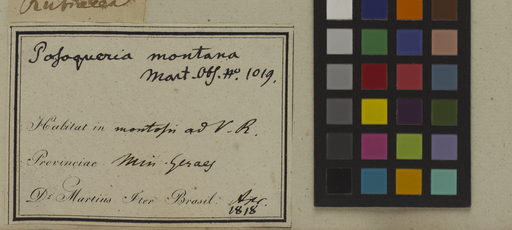 Rubiaceæ
Posoqueria montana
Mart. Obs. No. 1019.
Habitat in montosis ad V. R.
Provinciae Min. Geraes
Dr. Martius Iter Brasil. Apr.
1818